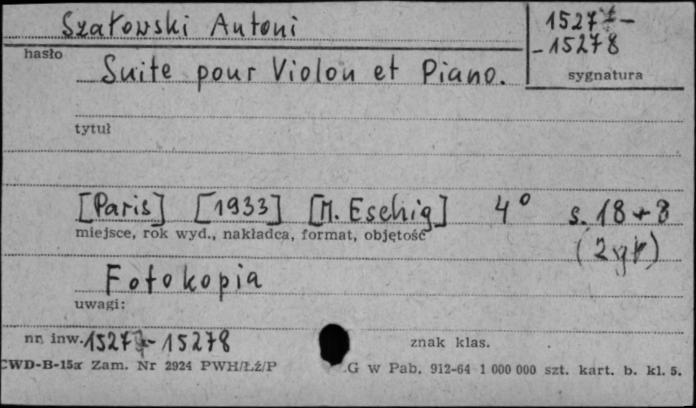 Szałowski Antoni
15277-
-15278
hasło
sygnatura
Suite pour Violon et Piano.
tytuł
[Paris] [1933] [M. Eschig] 4° s. 18 + 8
miejsce, rok wyd., nakładca, format, objętość
(2 gł)
Fotokopia
uwagi:
nr. inw. 15277-15278
znak klas.
CWD-B-15a Zam. Nr 2924 PWH/Ł.ź/P
G w Pab. 912-64 1 000 000 szt. kart. b. kl. 5.